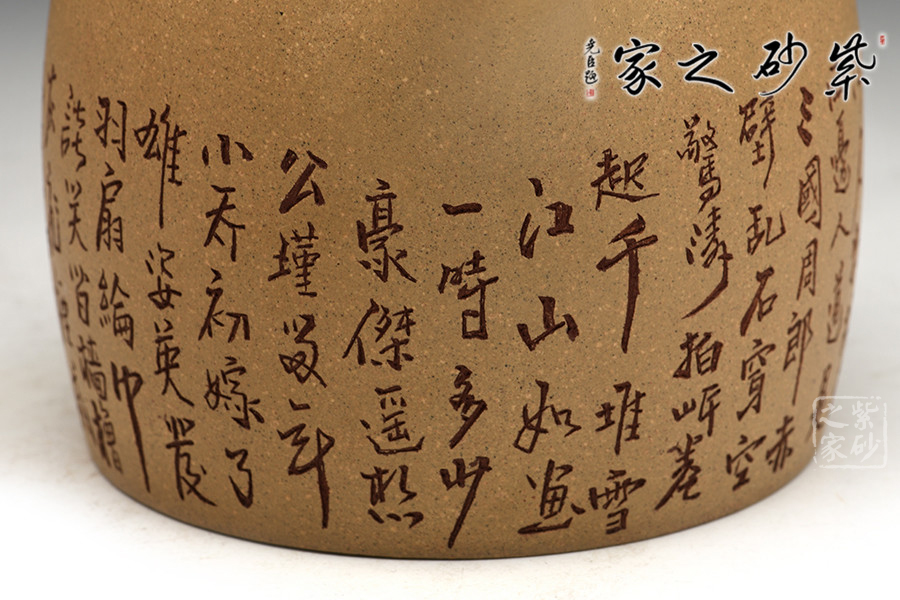 紫砂之家
邊人道
三國周郎赤
壁乱石穿空
驚濤拍岸卷
起千堆雪
江山如畫
一時多少
豪傑遥想
公瑾當年
小乔初嫁了
雄姿英發
羽扇綸巾
談笑檣櫓
紫砂
之家